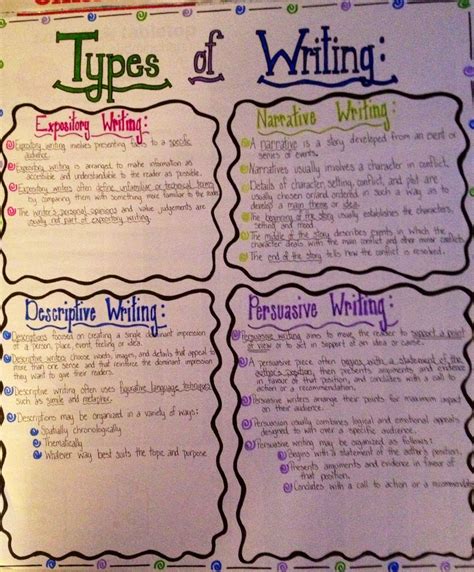 Types of Writing:
Expository Writing:
Expository writing involves presenting to a specific
audience.
Expository writing is arranged to make information as
accessible and understandable to the reader as possible.
Expository writers often define unfamiliar or technical terms
by comparing them with something more familiar to the reader.
The writer's personal opinions and value judgements are
usually not part of expository writing.
Narrative Writing:
A narrative is a story developed from an event or
series of events.
Narratives usually involve a character in conflict.
Details of character, setting, conflict, and plot are
usually chosen and ordered in such a way as to
develop a main theme or idea.
The beginning of the story usually establishes the characters,
setting and mood.
The middle of the story describes events in which the
character deals with the main conflict and other minor conflicts.
The end of the story tells how the conflict is resolved.
Descriptive Writing:
Descriptions focused on creating a single dominant impression
of a person, place, event, feeling or idea.
Descriptive writers choose words, images, and details that appeal to
more than one sense and that reinforce the dominant impression
they want to give their readers.
Descriptive writing often uses figurative language techniques
such as simile and metaphor.
Descriptions may be organized in a variety of ways:
Spatially chronologically
Thematically
Whatever way best suits the topic and purpose
Persuasive Writing:
Persuasive writing aims to move the reader to support a point
of view or to act in support of an idea or cause.
A persuasive piece often begins with a statement of the
author's position, then presents arguments and evidence
in favour of that position, and concludes with a call for
action or a recommendation.
Persuasive writers arrange their points for maximum impact
on their audience.
Persuasion usually combines logical and emotional appeals
designed to win over a specific audience.
Persuasive writing may be organized as follows:
Begins with a statement of the author's position.
Presents arguments and evidence in favour of
that position.
Concludes with a call to action or a recommendation